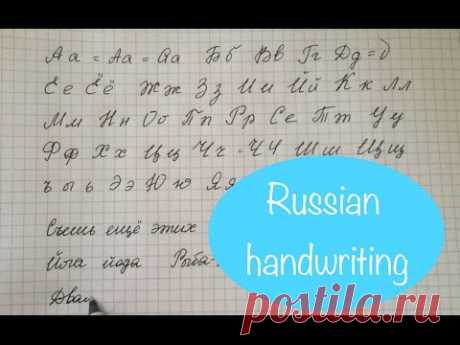 Аа = Аа = Аа Бб Вв Гг Дд = д
Ее Ёё Жж Зз Ии Йй Кк Лл
Мм Нн Оо Пп Рр Сс Тт Уу
Фф Хх Цц Чч = Чч Шш Щщ
ъ ы ь Ээ Юю Яя
Russian
handwriting
Съешь ещё этих
Йога йода Рыба-
Два
postila.ru